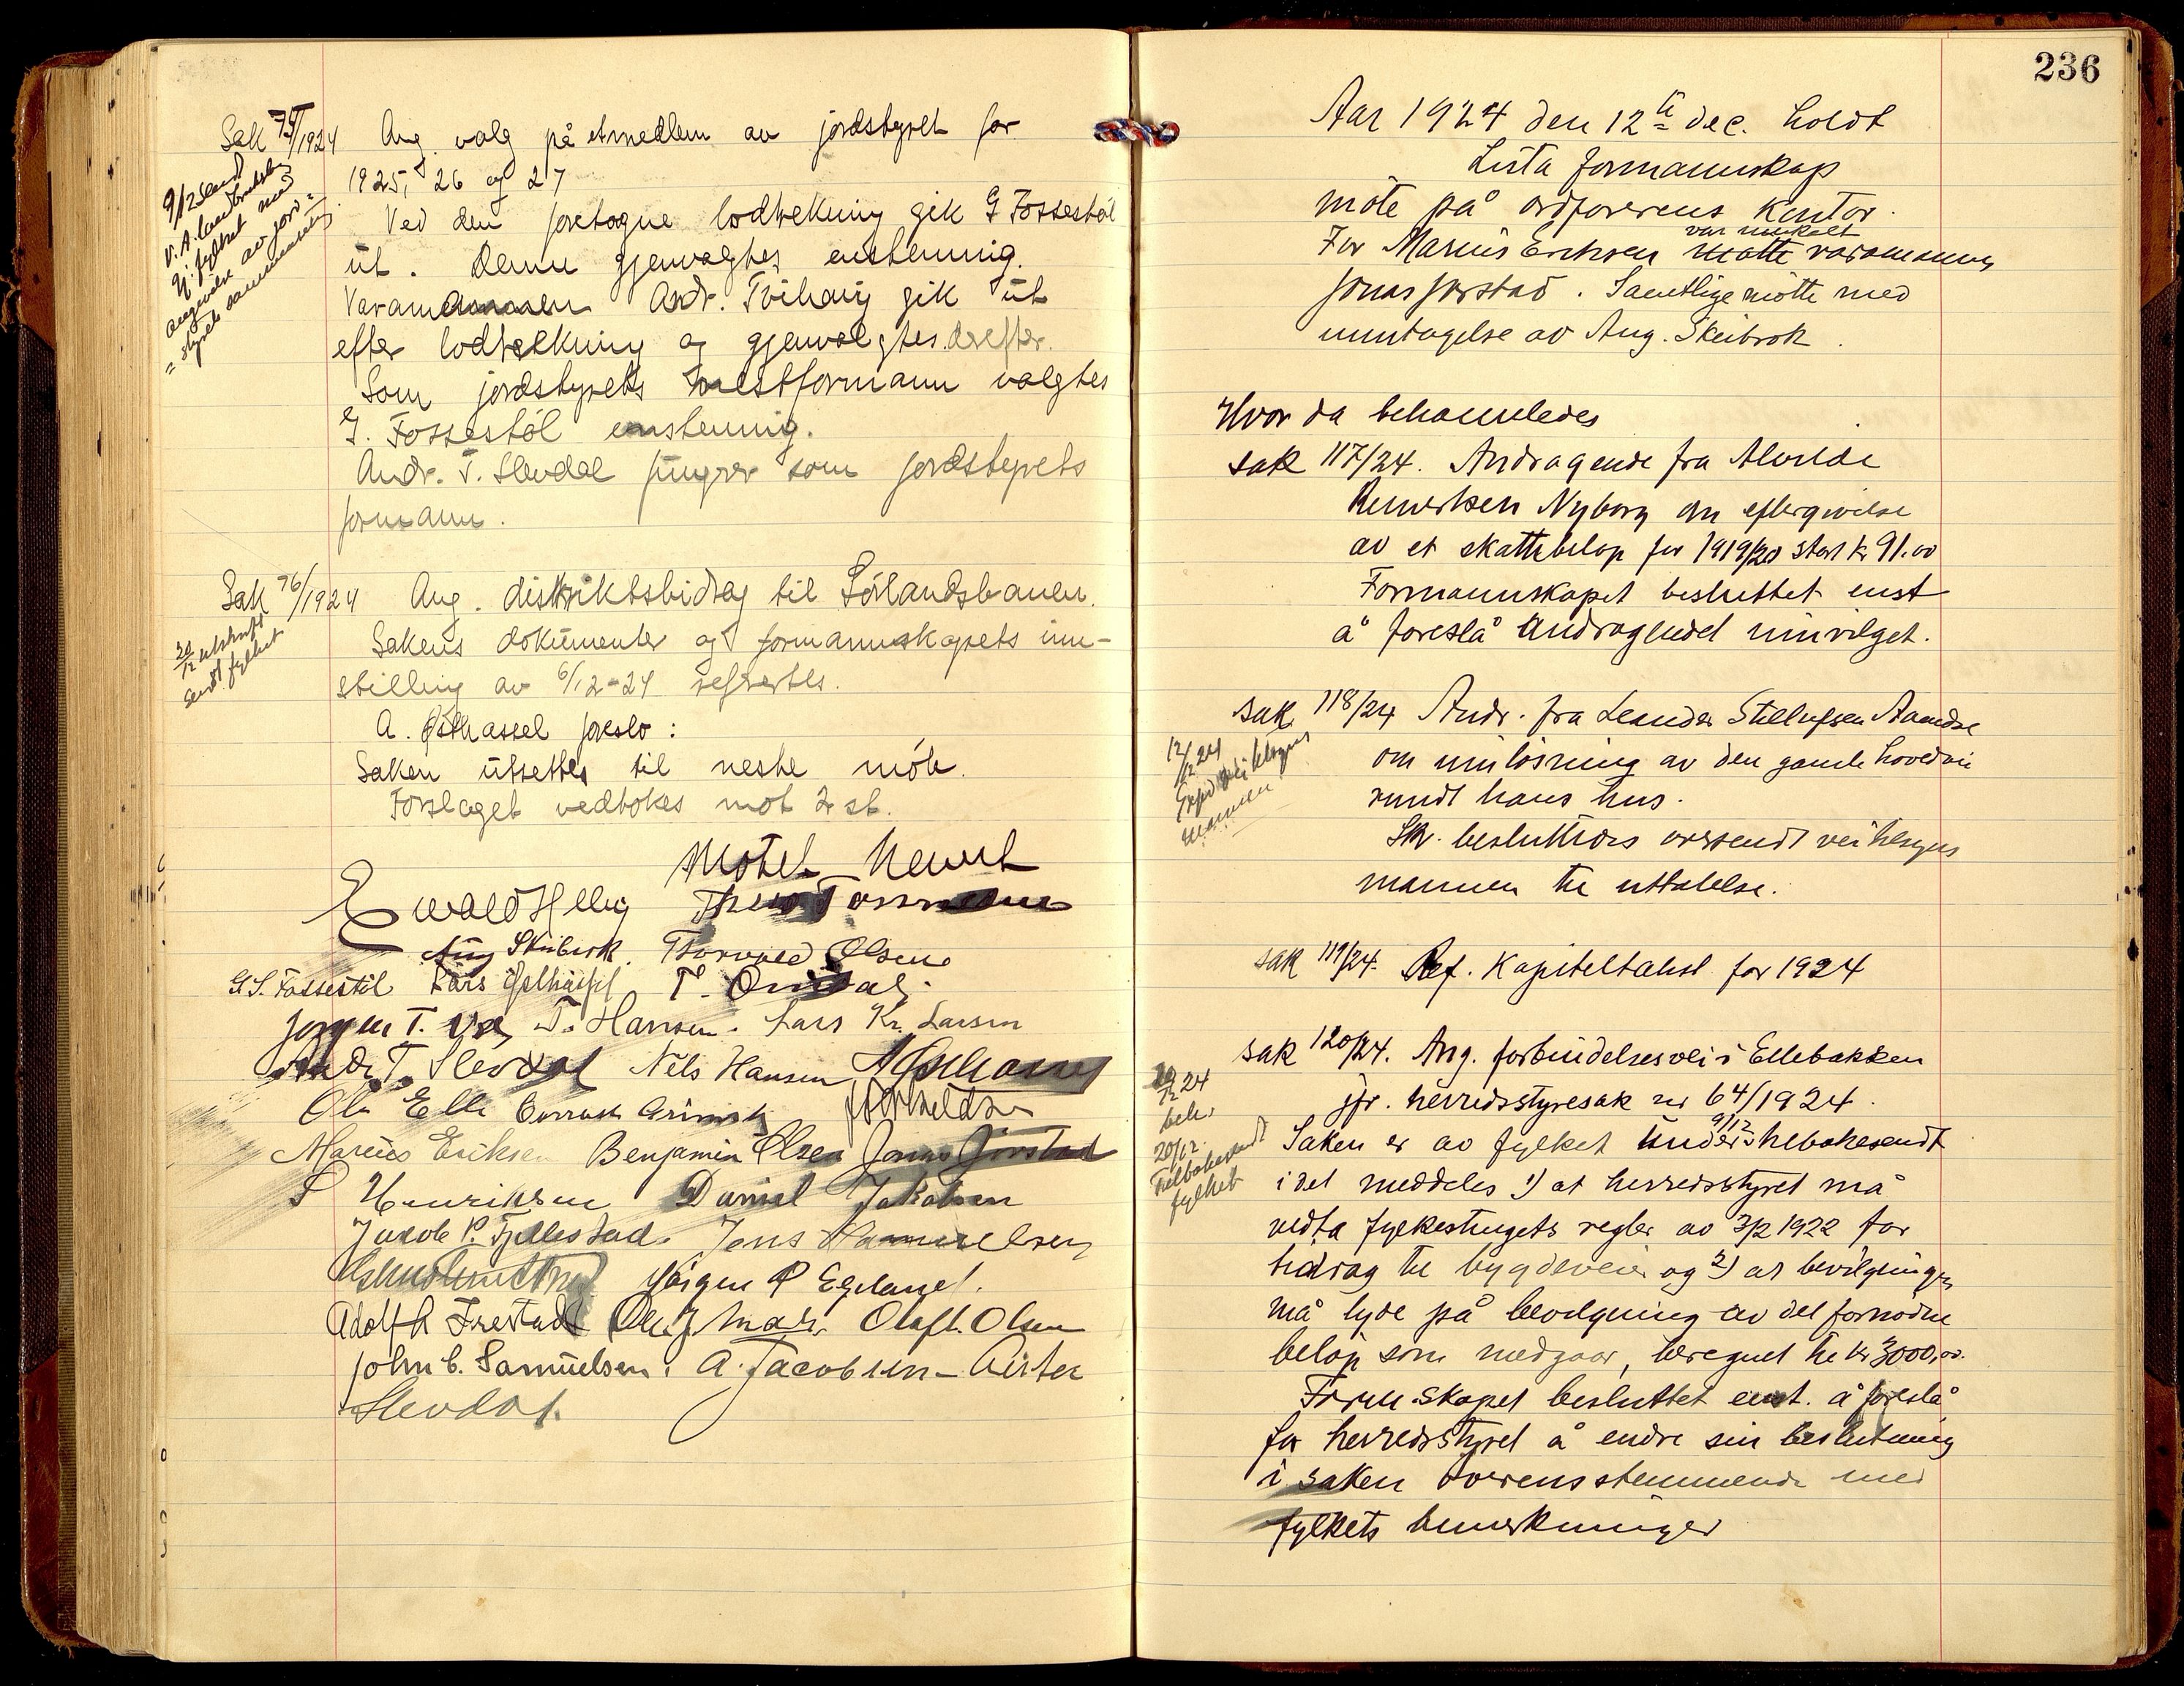 Sak 75/1924 Ang. valg på et medlem av jordstyret for
1925, 26 og 27
9/12 sendt
V.A. landbruksselsk.
fylket med
angivelse av jord-
styrets sammensetning
Ved den foretagne lodtrekning gik G Fossestøl
üt. Denne gjenvalgtes enstemmig.
Varamannen Andr. Tvihaug gik üt
efter lodtrekning og gjenvalgtes derefter.
Som jordstyrets nestformann valgtes
G. Fossestöl enstemmig.
Andr. T. Slevdal füngerer som jordstyrets
formann.
Sak 76/1924 Ang. distriktsbidrag til Sörlandsbanen.
20/12 utskrift
sendt fylket
Sakens dokümenter og formannskapets inn-
stilling av 6/12-24 refertes.
A. Østhassel foreslo:
Saken ütsettes til neste möte.
Forslaget vedtokes mot 2 st.
Mötet hevet
Ewald Helvig
Aug Skeibrok. Torvald Olsen
G S. Fossestöl Lars Østhassel T. Omdal.
Jørgen T. Væ T. Hansen. Lars Kr. Larsen
Andr. T. Slevdal Nils Hansen A Østhassel
Ole Elle
Marius Eriksen Benjamin Olsen Jonas Jörstad
S Henriksen Daniel Jakobsen
Jakob P. Fjellestad. Jens Samuelsen
Jörgen P Egeland.
Adolf R Frestad Olaf L. Olsen
John C. Samüelsen. A. Jacobsen-
Slevdal.
236
Aar 1924 den 12te dec. holdt
Lista formannskap
möte på ordförerens kontor.
For Marius Eriksen var innkalt møtte varamannen
Jonas Jørstad. Samtlige mötte med
unntagelse av Aug. Skeibrok.
Hvor da behandledes
sak 117/24. Andragende fra Alvilde
Reinertsen Nyborg om eftergivelse
av et skattebeløp for 1919/20 stort kr 91.00
Formannskapet besluttet enst
å foreslå andragendet innvilget.
sak 118/24 Andr. fra Leander Stellufsen Aamdse
om innlösning av den gamle hovedvei
rundt hans hus.
12/12 24
Exped veiklages
mannen
Skr. besluttedes oversendt veiklages
mannen til uttalelse.
sak 119/24. Ref. Kapiteltakst for 1924
sak 120/24. Ang. forbindelsesvei i Ellebakken
jfr. herredsstyresak nr 64/1924.
20/12 24
beh.
20/12
tilbakesendt
fylket
Saken er av fylket under 9/12 tilbakesendt
idet meddeles 1) at herredsstyret må
vedta fylkestingets regler av 3/2 1922 for
bidrag til bygdeveier og 2) at bevilgningen
må lyde på bevilgning av det fornødne
beløp som medgaar, beregnet til kr 3000,00.
Form.skapet besluttet enst. å foreslå
for herredsstyret å endre sin beslutning
i saken overensstemmende med
fylkets bemerkninger